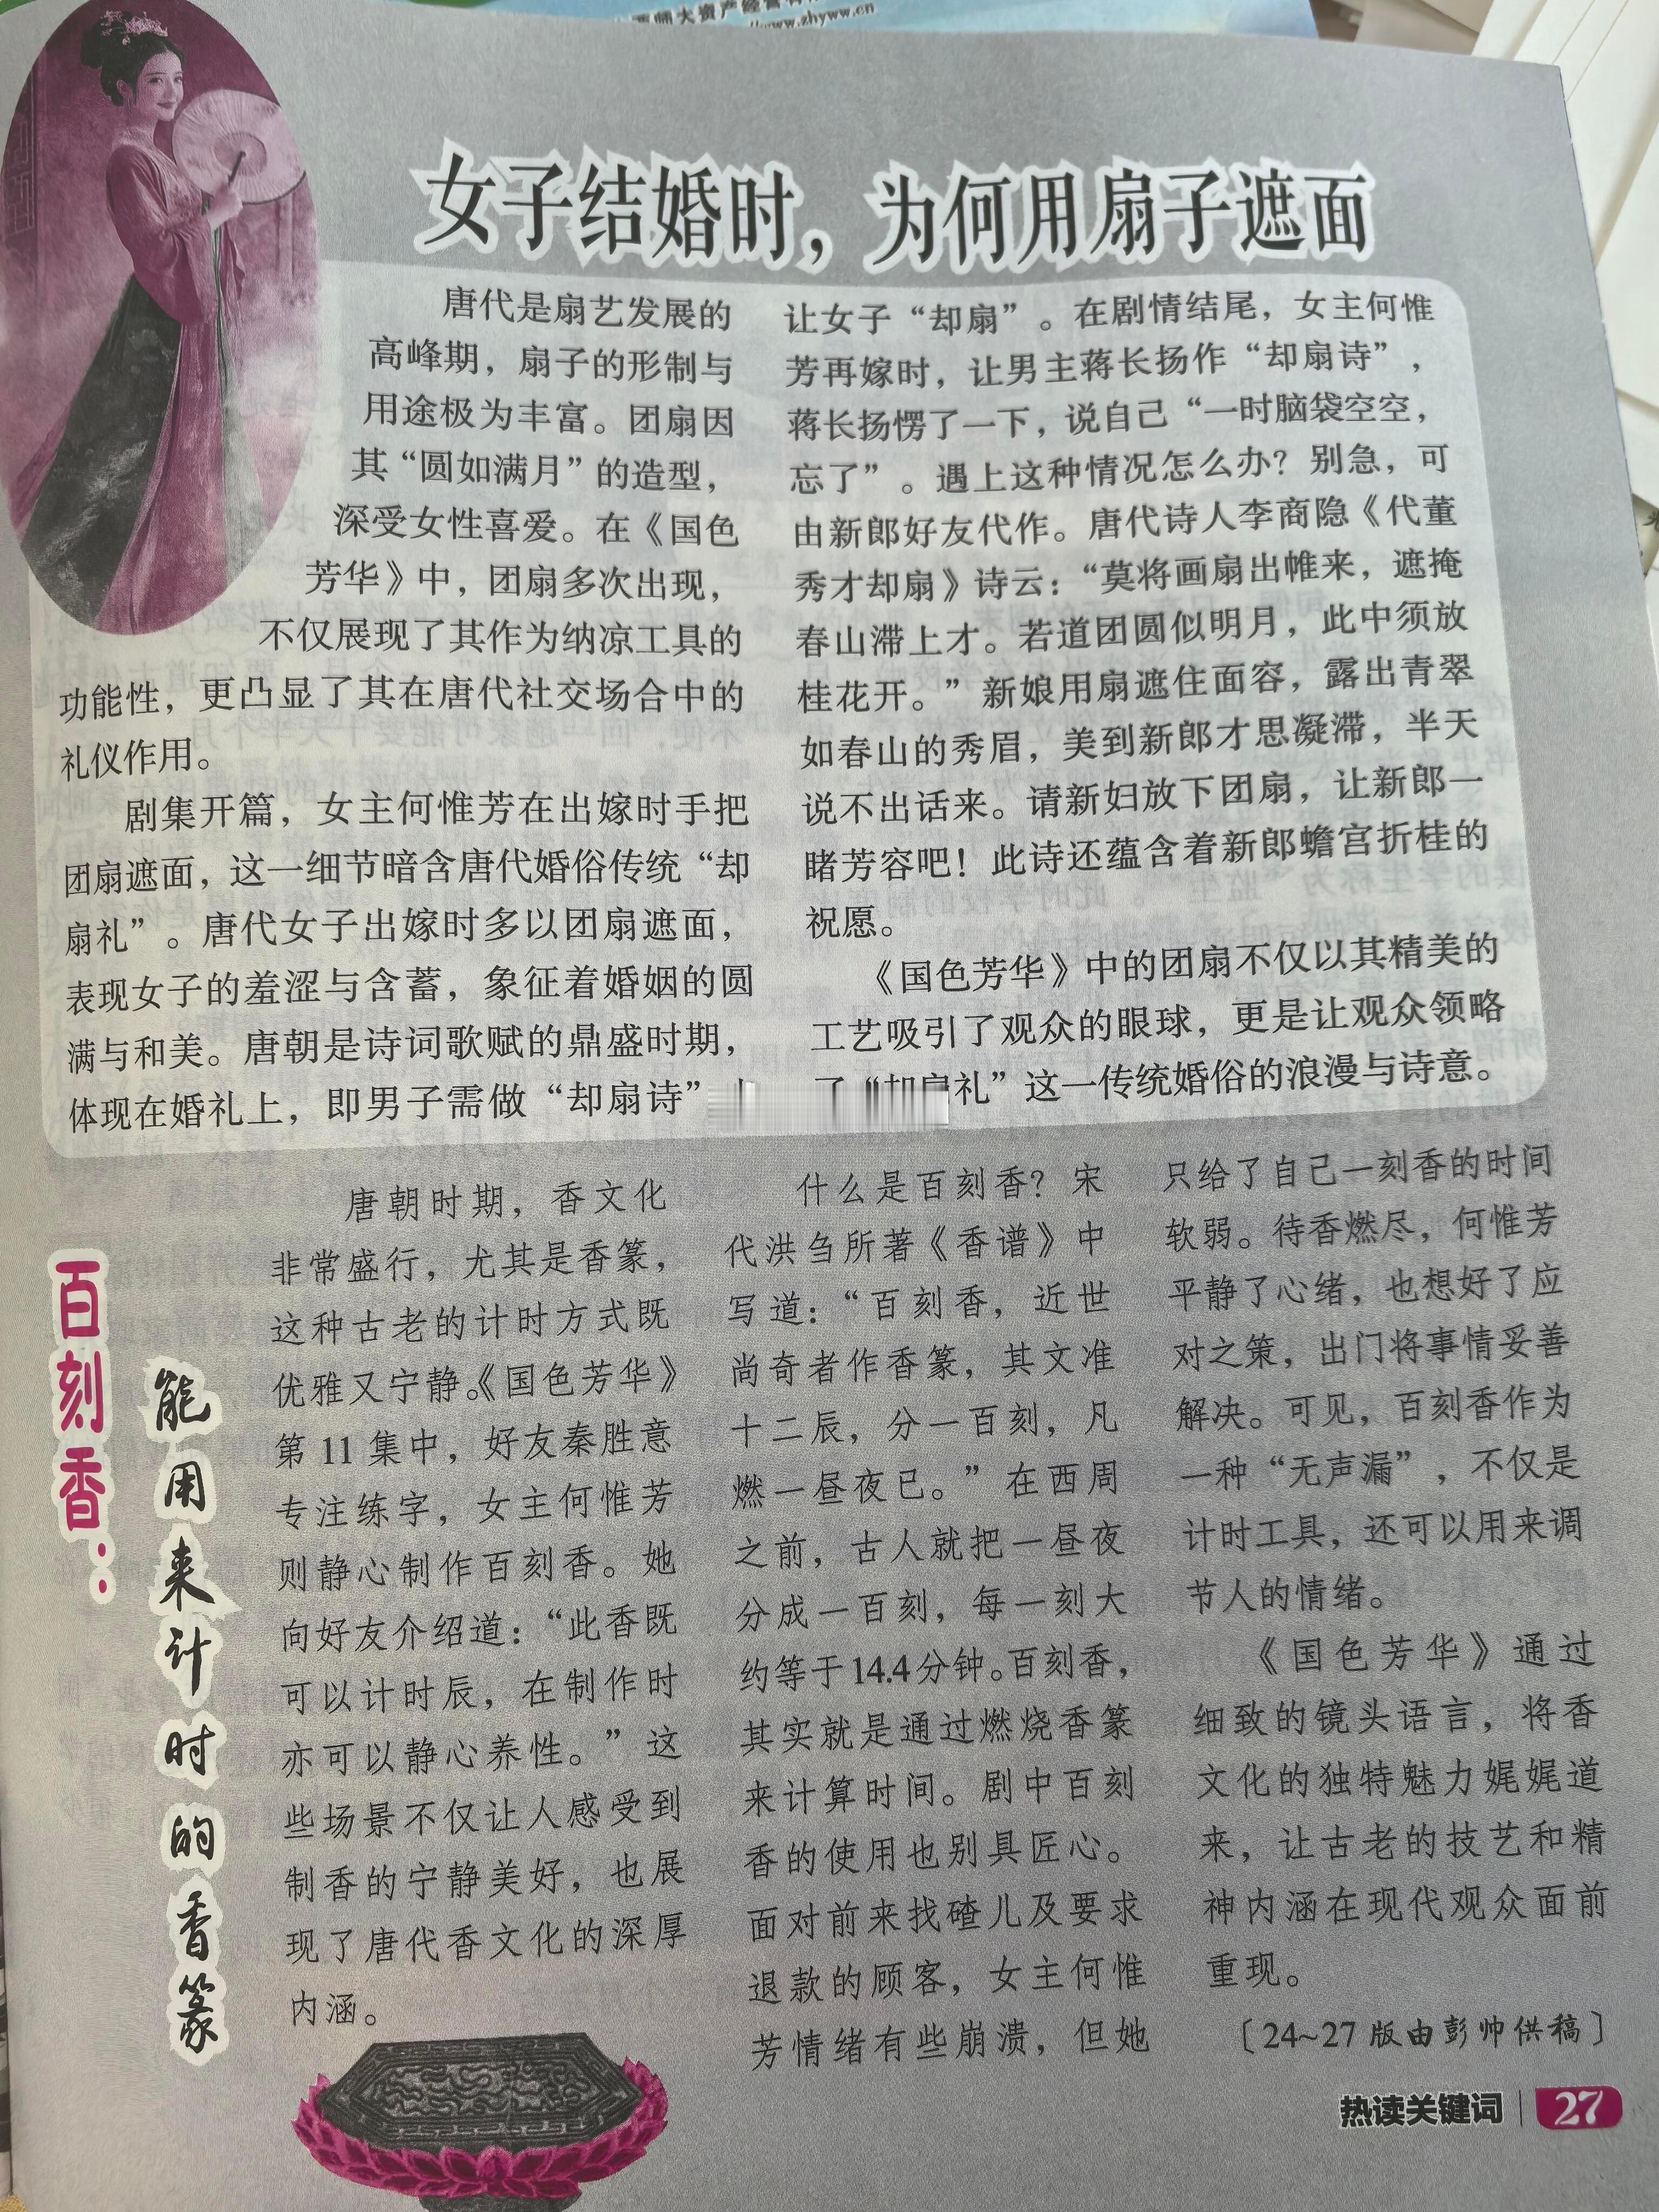 师大资产经营有
//www.zhyww.cn
女子结婚时，为何用扇子遮面
唐代是扇艺发展的
高峰期，扇子的形制与
用途极为丰富。团扇因
其“圆如满月”的造型，
深受女性喜爱。在《国色
芳华》中，团扇多次出现，
不仅展现了其作为纳凉工具的
功能性，更凸显了其在唐代社交场合中的
礼仪作用。
剧集开篇，女主何惟芳在出嫁时手把
团扇遮面，这一细节暗含唐代婚俗传统“却
扇礼”。唐代女子出嫁时多以团扇遮面，
表现女子的羞涩与含蓄，象征着婚姻的圆
满与和美。唐朝是诗词歌赋的鼎盛时期，
体现在婚礼上，即男子需做“却扇诗”
让女子“却扇”。在剧情结尾，女主何惟
芳再嫁时，让男主蒋长扬作“却扇诗”，
蒋长扬愣了一下，说自己“一时脑袋空空，
忘了”。遇上这种情况怎么办？别急，可
由新郎好友代作。唐代诗人李商隐《代董
秀才却扇》诗云：“莫将画扇出帷来，遮掩
春山滞上才。若道团圆似明月，此中须放
桂花开。”新娘用扇遮住面容，露出青翠
如春山的秀眉，美到新郎才思凝滞，半天
说不出话来。请新妇放下团扇，让新郎一
睹芳容吧！此诗还蕴含着新郎蟾宫折桂的
祝愿。
《国色芳华》中的团扇不仅以其精美的
工艺吸引了观众的眼球，更是让观众领略
了“却扇礼”这一传统婚俗的浪漫与诗意。
百刻香：
能用来计时的香篆
唐朝时期，香文化
非常盛行，尤其是香篆，
这种古老的计时方式既
优雅又宁静。《国色芳华》
第 11 集中，好友秦胜意
专注练字，女主何惟芳
则静心制作百刻香。她
向好友介绍道：“此香既
可以计时辰，在制作时
亦可以静心养性。”这
些场景不仅让人感受到
制香的宁静美好，也展
现了唐代香文化的深厚
内涵。
什么是百刻香？宋
代洪刍所著《香谱》中
写道：“百刻香，近世
尚奇者作香篆，其文准
十二辰，分一百刻，凡
燃一昼夜已。”在西周
之前，古人就把一昼夜
分成一百刻，每一刻大
约等于14.4分钟。百刻香，
其实就是通过燃烧香篆
来计算时间。剧中百刻
香的使用也别具匠心。
面对前来找碴儿及要求
退款的顾客，女主何惟
芳情绪有些崩溃，但她
只给了自己一刻香的时间
软弱。待香燃尽，何惟芳
平静了心绪，也想好了应
对之策，出门将事情妥善
解决。可见，百刻香作为
一种“无声漏”，不仅是
计时工具，还可以用来调
节人的情绪。
《国色芳华》通过
细致的镜头语言，将香
文化的独特魅力娓娓道
来，让古老的技艺和精
神内涵在现代观众面前
重现。
〔24~27 版由彭帅供稿〕
热读关键词 27